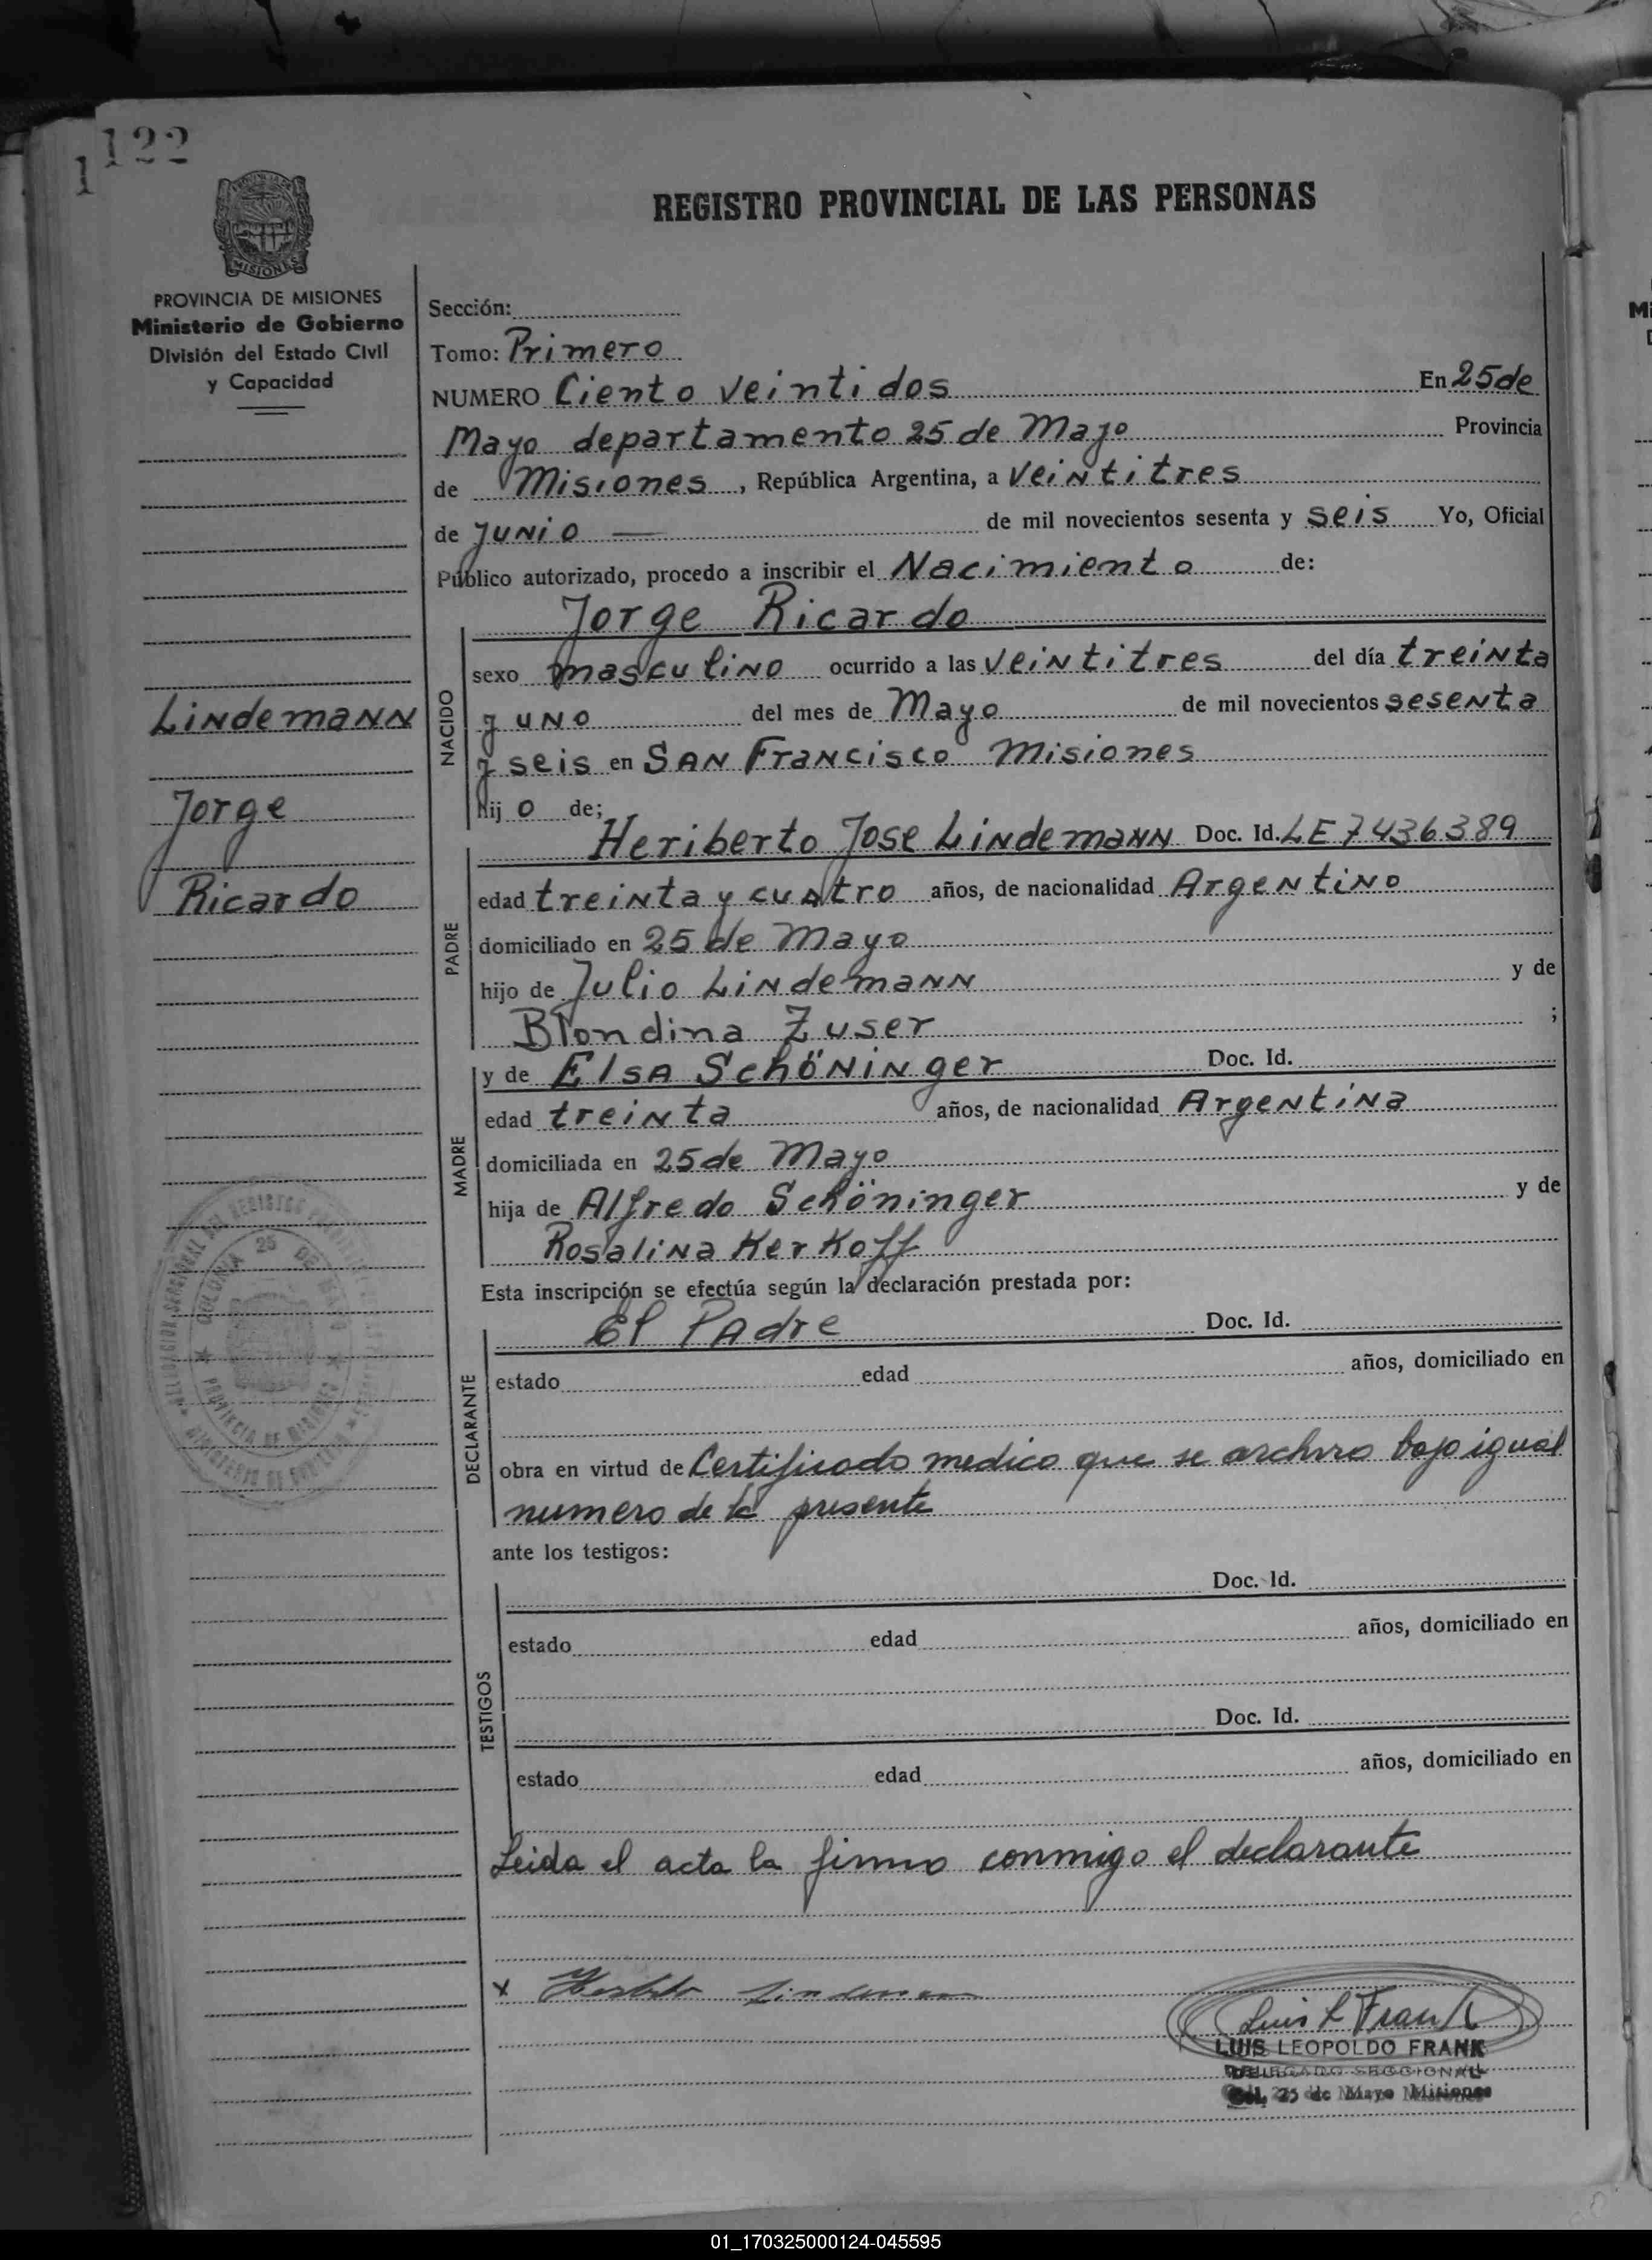 122
1
PROVINCIA DE MISIONES
Ministerio de Gobierno
División del Estado Civil
y Capacidad
Lindemann
Jorge
Ricardo
REGISTRO PROVINCIAL DE LAS PERSONAS
Sección:
Tomo: Primero
NUMERO Ciento veintidos En 25 de
Mayo departamento 25 de Mayo Provincia
de Misiones, República Argentina, a veintitres
de junio — de mil novecientos sesenta y seis Yo, Oficial
Público autorizado, procedo a inscribir el Nacimiento de:
Jorge Ricardo
NACIDO
sexo masculino ocurrido a las veintitres del día treinta
y uno del mes de Mayo de mil novecientos sesenta
y seis en San Francisco Misiones
hij o de;
PADRE
Heriberto Jose Lindemann Doc. Id. LE 7436389
edad treinta y cuatro años, de nacionalidad Argentino
domiciliado en 25 de Mayo
hijo de Julio Lindemann y de
Blondina Zuser ;
MADRE
y de Elsa Schöninger Doc. Id.
edad treinta años, de nacionalidad Argentina
domiciliada en 25 de Mayo
hija de Alfredo Schöninger y de
Rosalina Kerkoff
Esta inscripción se efectúa según la declaración prestada por:
DECLARANTE
El Padre Doc. Id.
estado edad años, domiciliado en
obra en virtud de Certificado medico que se archiva bajo igual
numero de la presente
ante los testigos:
TESTIGOS
Doc. Id.
estado edad años, domiciliado en
Doc. Id.
estado edad años, domiciliado en
Leida el acta la firma conmigo el declarante
x Heriberto Lindemann
Luis L Frank
LUIS LEOPOLDO FRANK
DELEGADO SECCIONAL
Col. 25 de Mayo Misiones
COLONIA 25 DE MAYO
PROVINCIA DE MISIONES
01_170325000124-045595